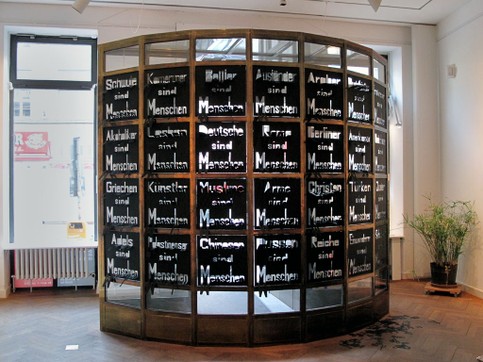 Schwule
sind
Menschen
Kameruner
sind
Menschen
sind
Menschen
Ausländer
sind
Menschen
Araber
sind
Menschen
Alkoholiker
sind
Menschen
Lesben
sind
Menschen
Deutsche
sind
Menschen
Roma
sind
Menschen
Berliner
sind
Menschen
Griechen
sind
Menschen
Künstler
sind
Menschen
Muslime
sind
Menschen
Arme
sind
Menschen
Christen
sind
Menschen
Türken
sind
Menschen
sind
Menschen
Palästinenser
sind
Menschen
Chinesen
sind
Menschen
Russen
sind
Menschen
Reiche
sind
Menschen
sind
Menschen